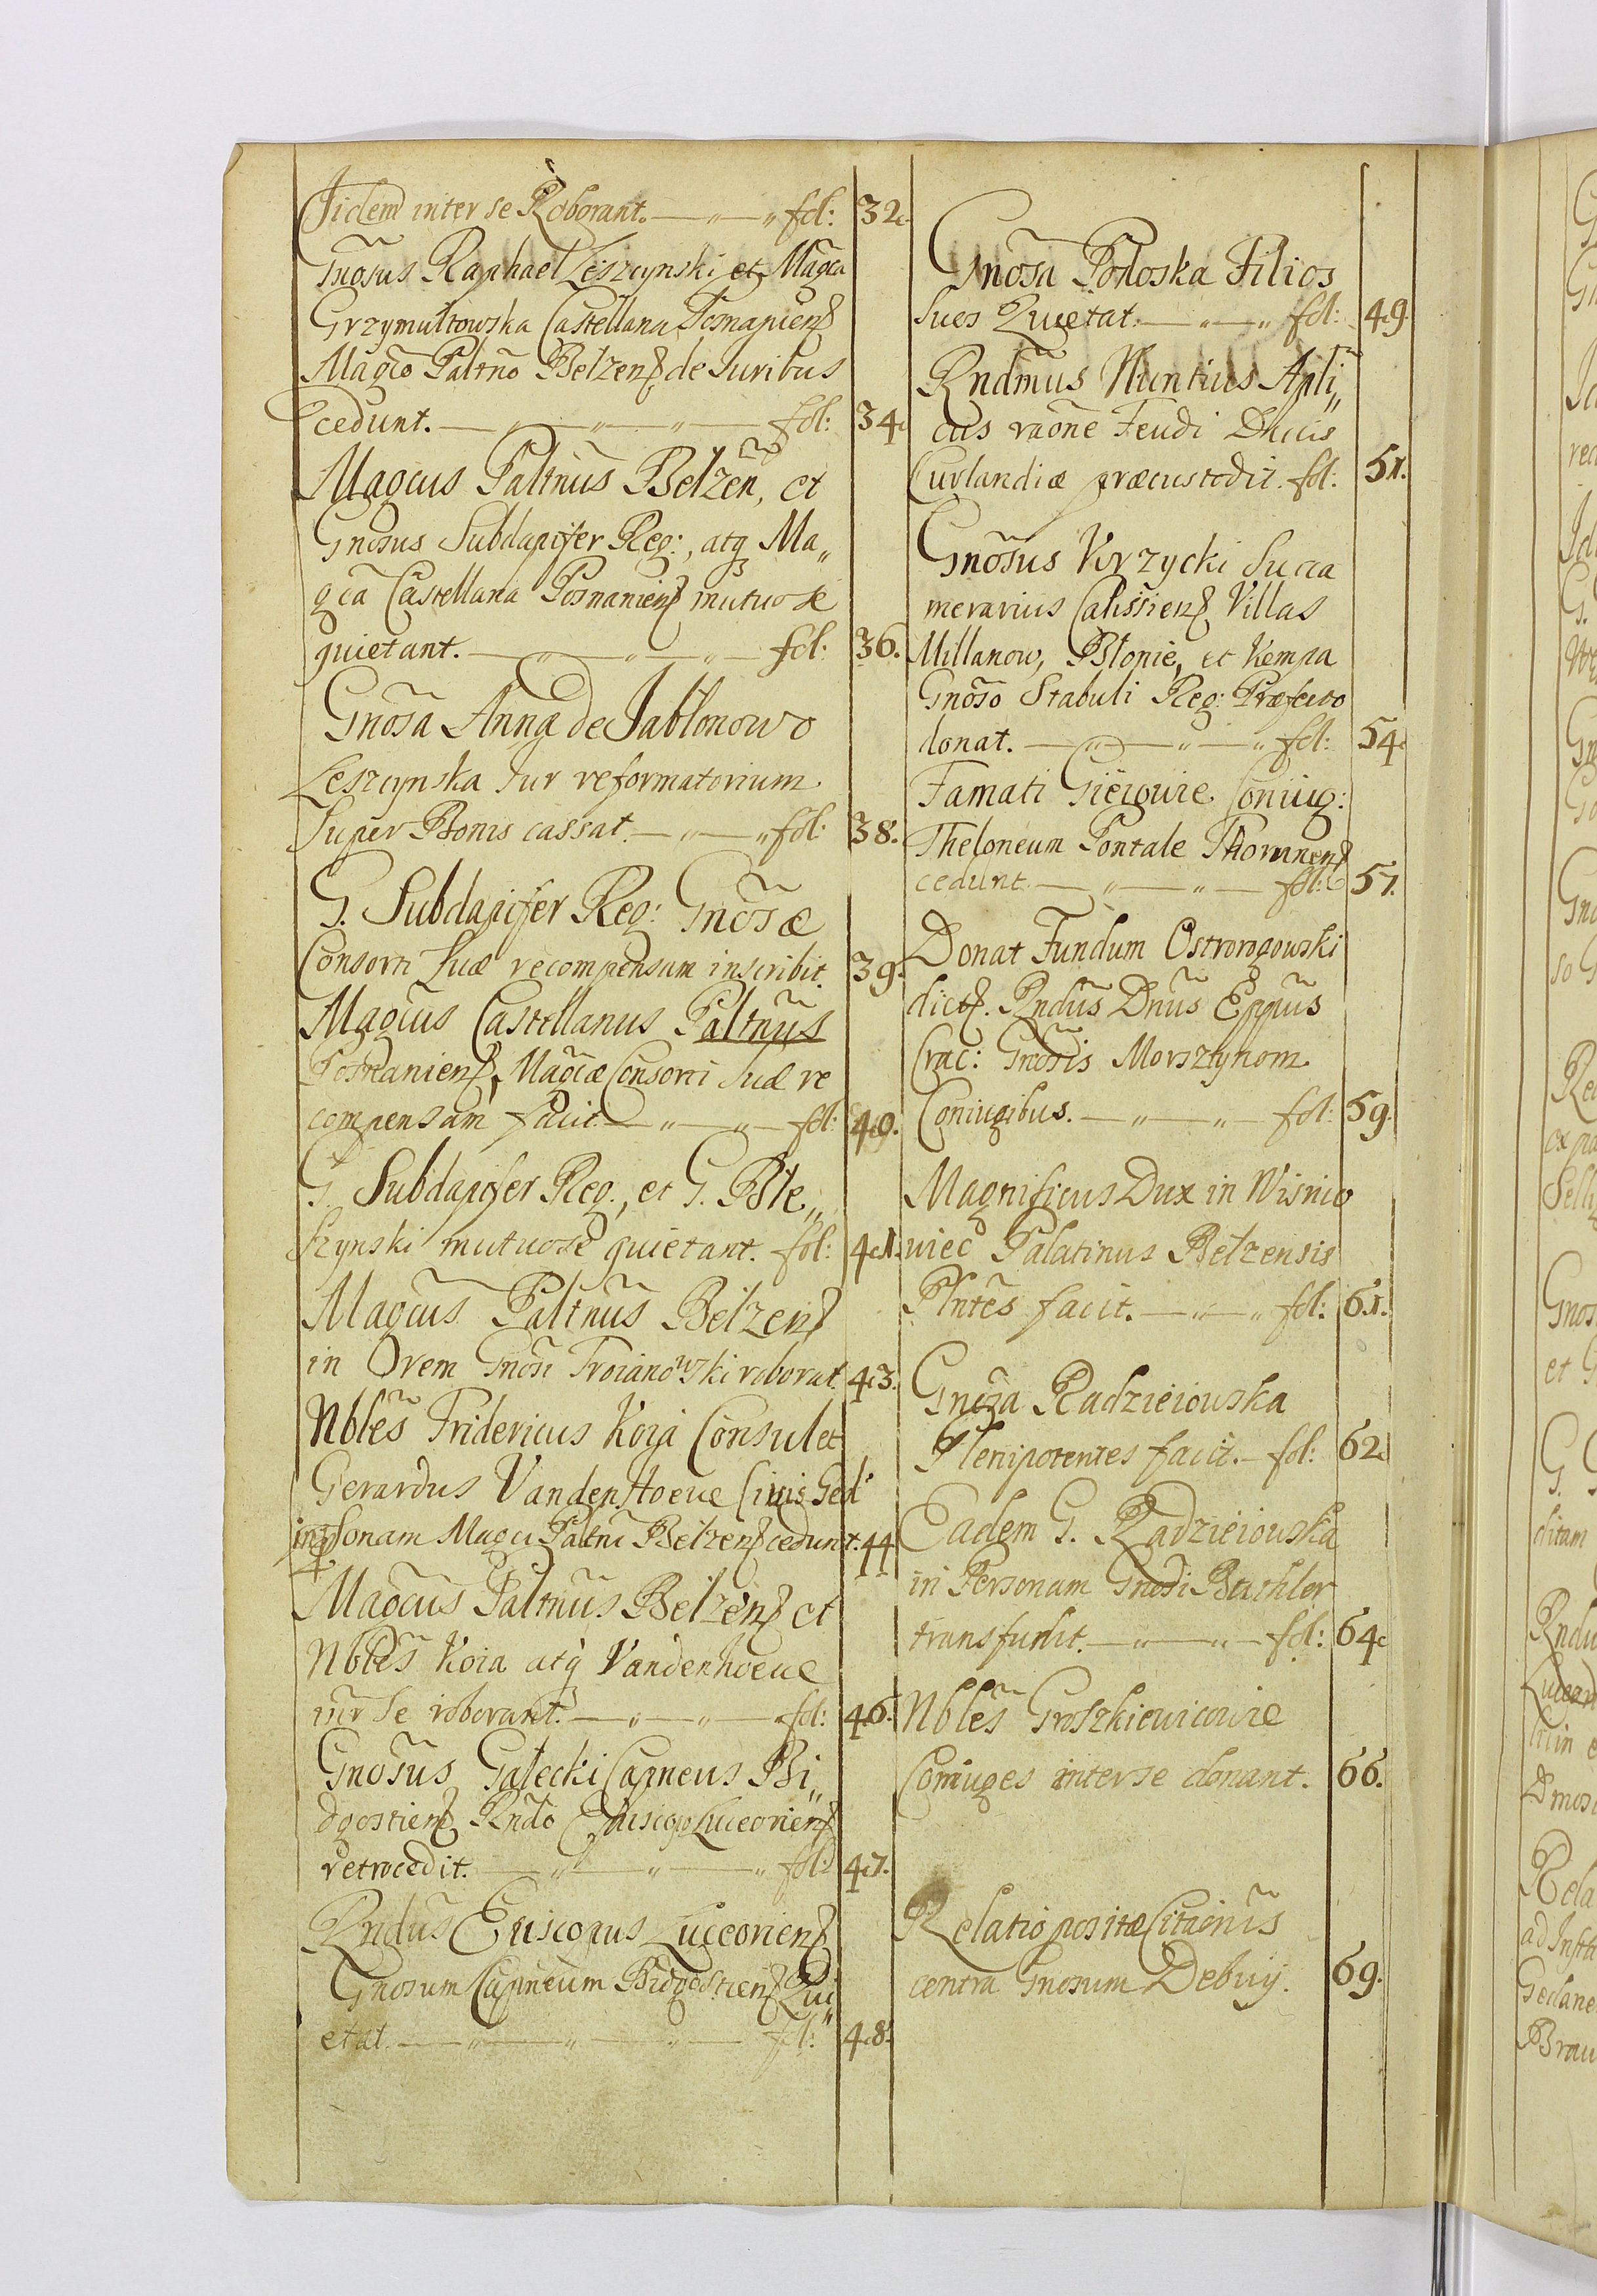 Iidem inter se Roborant. fol: 32.
Gnosus Raphael Leszcynski et Magca
Grzymułtowska Castellana Posnaniens
Magco Paltno Belzens, de Iuribus
cedunt. fol: 34.
Magcus Paltnus Belzen, et
Gnosus Subdapifer Reg:, atq Ma„
gca Castellana Posnaniens mutuo se
quietant. fol: 36.
Gnosa Anna de Jabłonowo
Leszcynska Iur reformatorium
Super Bonis cassat. fol: 38.
G. Subdapifer Reg: Gnosæ
Consorti Suæ recompensam inscribit. 39.
Magcus Castellanus Paltnus
Posnaniens, Magcæ Consorti Suæ re
compensam facit. fol: 40.
G. Subdapifer Reg., et G. Ble„
szynski mutuo se quietant. fol: 41.
Magcus Paltnus Belzens
in Orem Gnosi Troianowski roborat. 43.
Nbles Fridericus Koia Consul et
Gerardus VandenHoeue Civis Ged:
in psonam Magci Paltni Belzens cedunt. 44
Magcus Paltnus Belzens et
Nbles Koia atq Vandenhoeue
intr se roborant. fol: 46.
Gnosus Gałecki Capneus Bi„
dgostiens Rndo Episcopo Luceoriens
retrocedit. fol: 47.
Rndus Episcopus Luceoriens
Gnosum Capneum Bidgostiens Qui„
etat. fol: 48.
Gnosa Podoska Filios
Suos Quietat. fol: 49.
Rndmus Nuntius Apli„
cus raone Feudi Ducis
Curlandiæ præcustodit. fol: 51.
Gnosus Krzycki Succa
merarius Calissiens Villas
Millanow, Błonie, et Kempa
Gnoso Stabuli Reg: Præfecto
donat. fol: 54.
Famati Coniug:
Theloneum Pontale Thorunens
cedunt. fol: 57.
Donat Fundum Ostrorogowski
dict. Rndus Dnus Eppus
Crac: Gnosis Morsztynom
Coniugibus. fol: 59.
Magnificus Dux in Wisnio
wiec Palatinus Belzensis
Plntes facit. fol: 61.
Gnosa Radzieiouska
Plenipotentes facit. fol: 62.
Eadem G. Radzieiouska
in Personam Gnosi
transfundit. fol: 64.
Nbles Groszkiewicowie
Coniuges inter se donant. 66.
Relatio positæ Citaonis
contra Gnosum Debuy. 69.